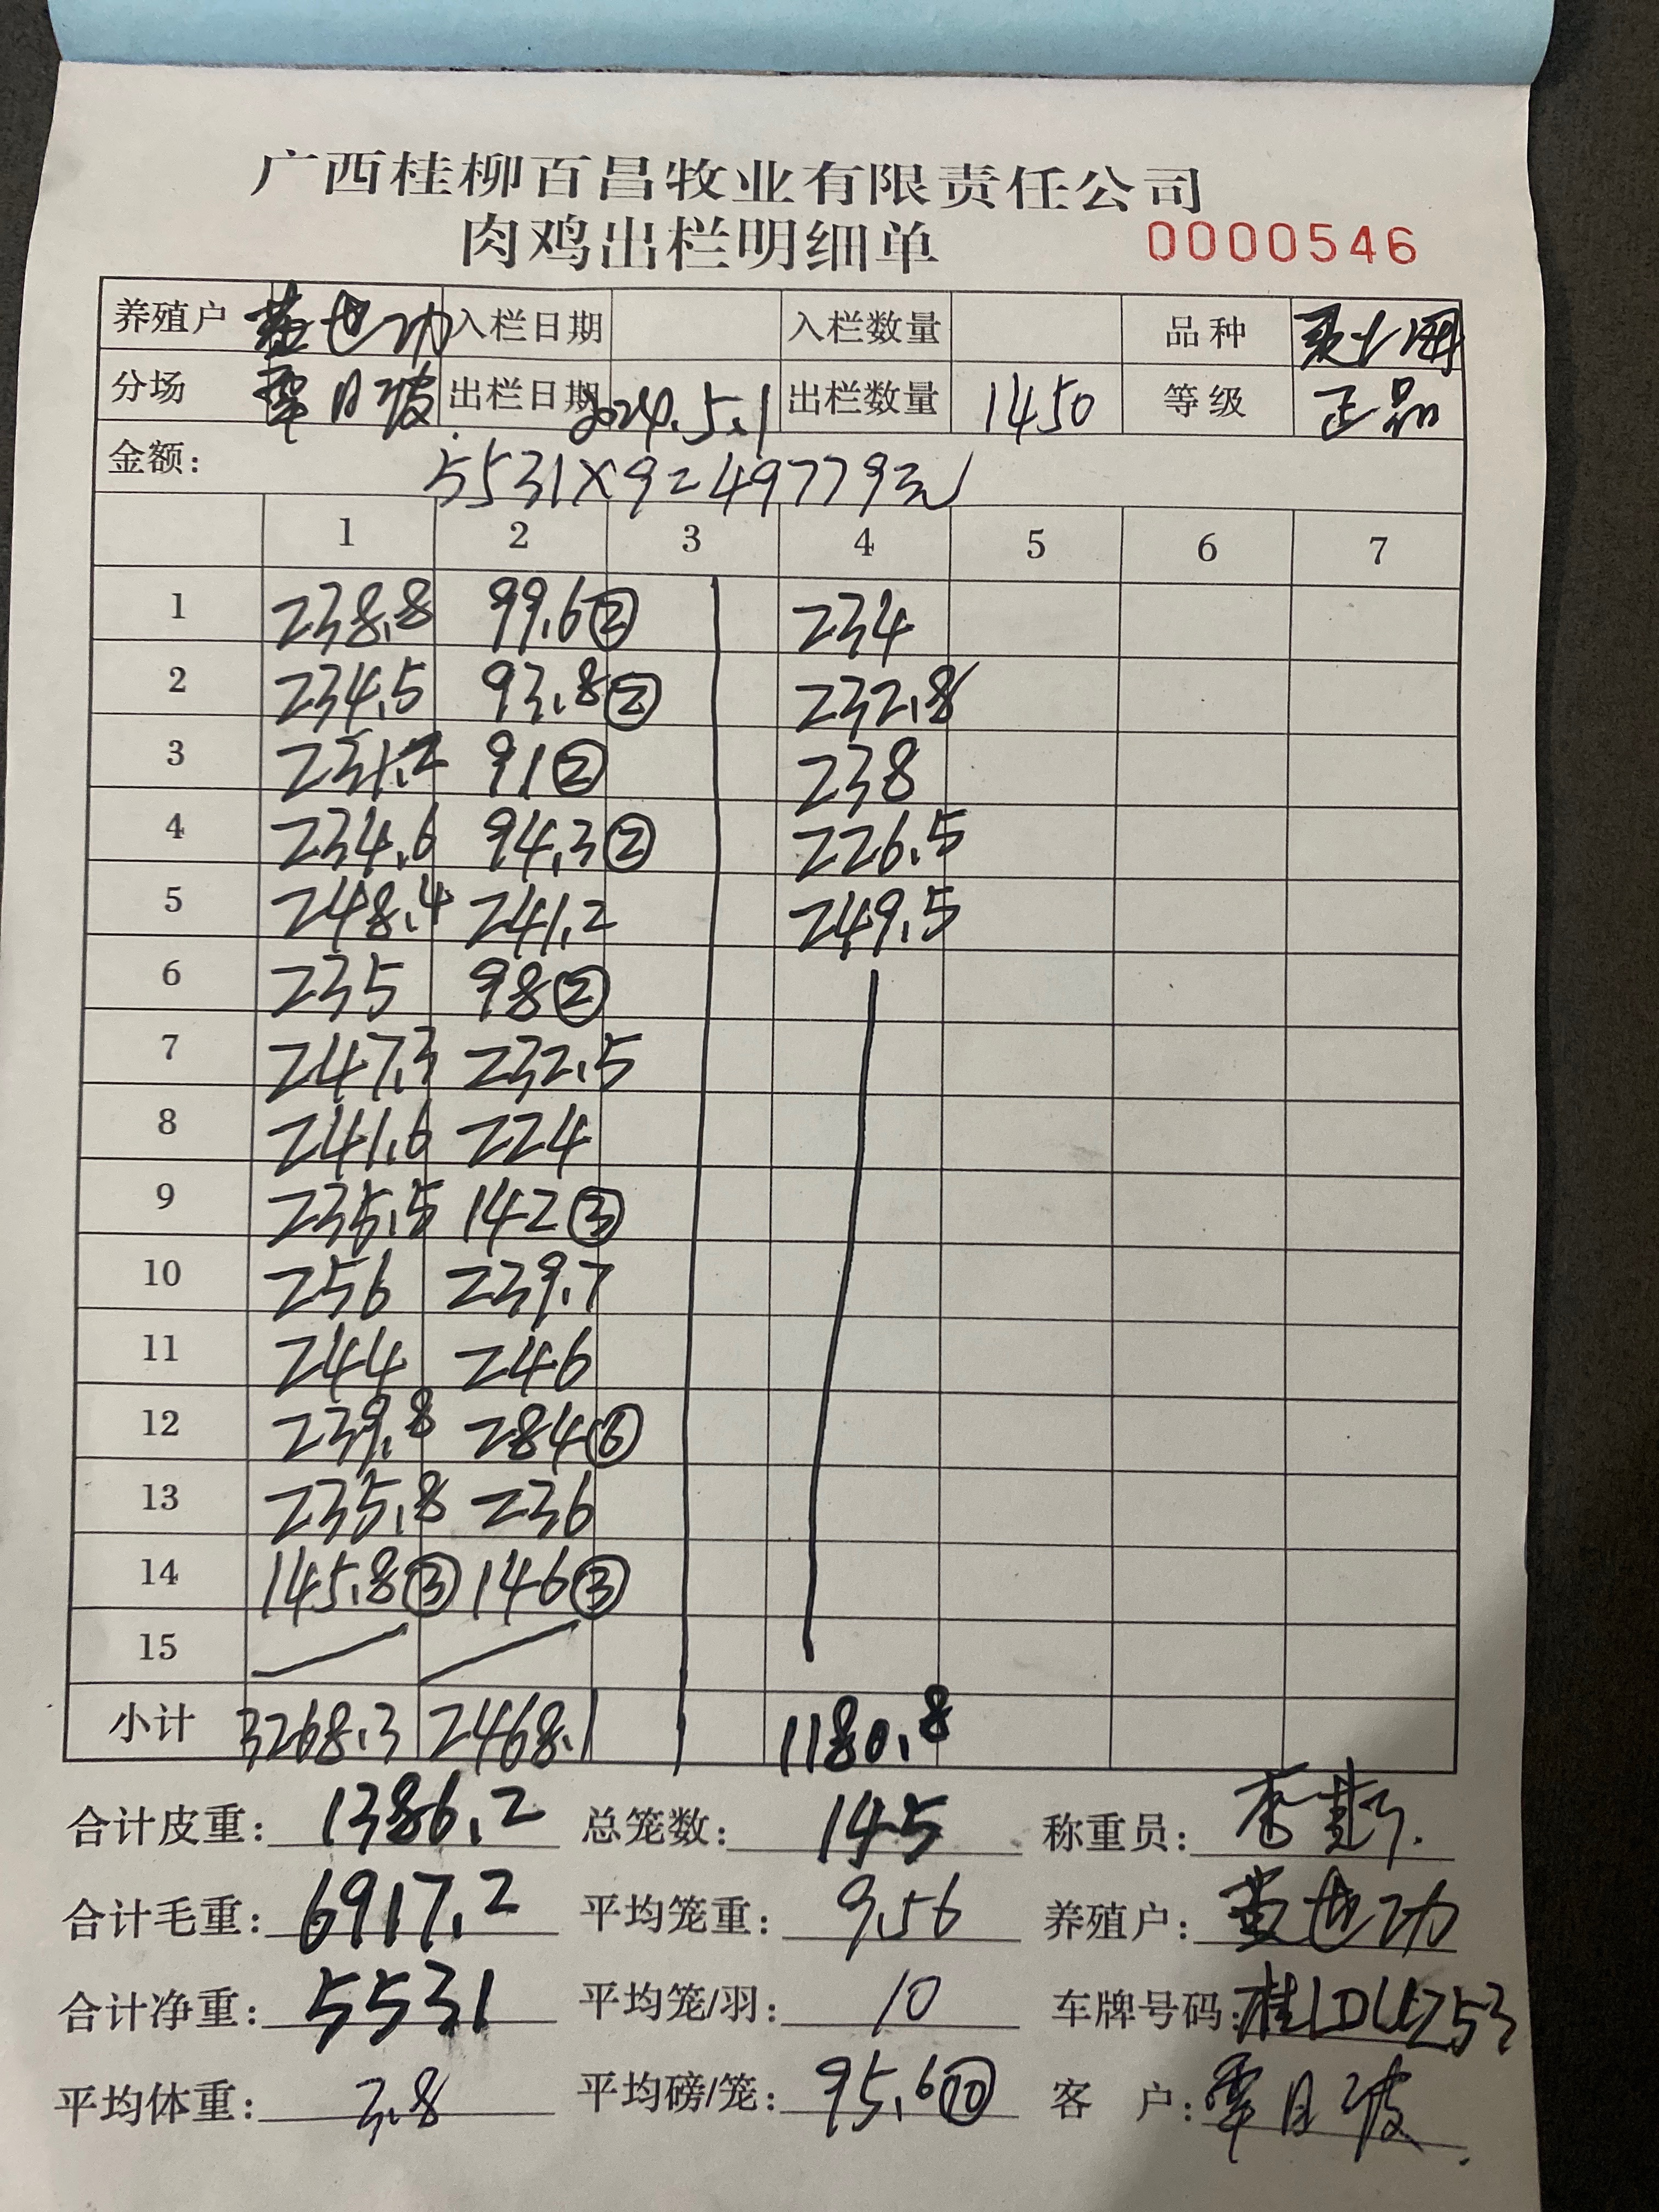 广西桂柳百昌牧业有限责任公司
肉鸡出栏明细单 0000546
养殖户 黄世功 入栏日期 入栏数量 品种
分场 覃日波 出栏日期 2024.5.1 出栏数量 1450 等级 正品
金额: 5531×9=49779元
1 2 3 4 5 6 7
1 238.8 99.6② 234
2 234.5 93.8② 232.8
3 231.2 91② 238
4 234.6 94.3② 226.5
5 248.4 241.2 249.5
6 235 98②
7 247.3 232.5
8 241.6 224
9 235.5 142③
10 256 239.7
11 244 246
12 239.8 284⑥
13 235.8 236
14 145.8③ 146③
15
小计 3268.3 2468.1 1180.8
合计皮重: 1386.2 总笼数: 145 称重员: 李
合计毛重: 6917.2 平均笼重: 9.56 养殖户: 黄世功
合计净重: 5531 平均笼/羽: 10 车牌号码: 桂
平均体重: 3.8 平均磅/笼: 95.6⑩ 客 户: 覃日波